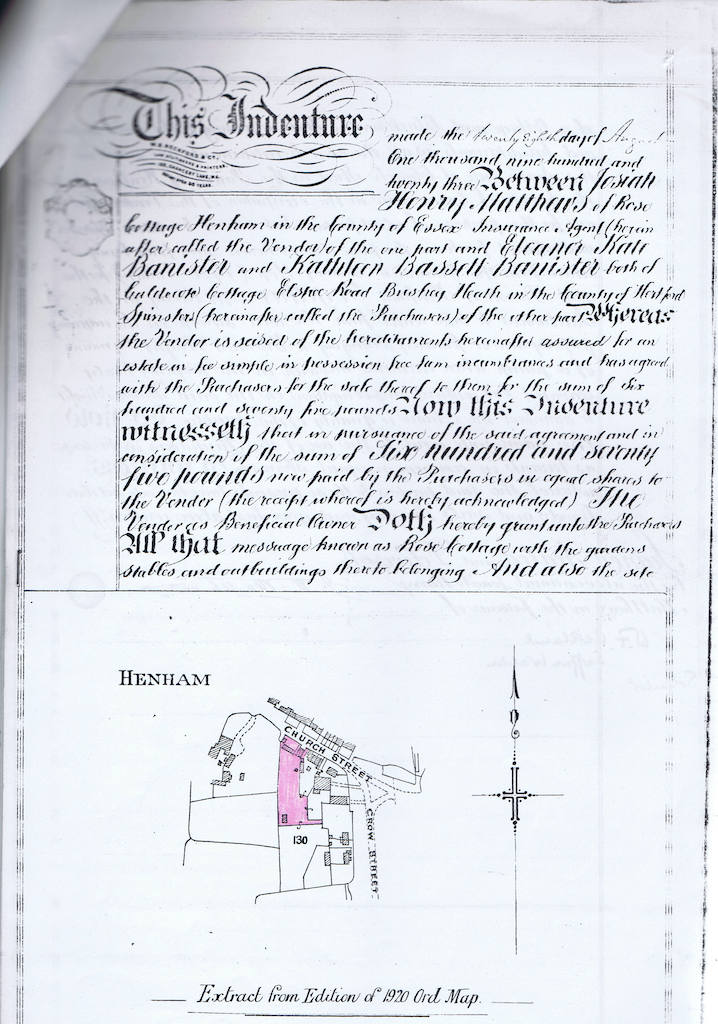 This Indenture
made the twenty eighth day of August
One thousand nine hundred and
twenty three Between Josiah
Henry Matthews of Rose
Cottage Henham in the County of Essex Insurance Agent (herein
after called the Vendor) of the one part and Eleanor Kate
Banister and Kathleen Bassett Banister both of
Caldecote Cottage Elstree Road Bushey Heath in the County of Hertford
Spinsters (hereinafter called the Purchasers) of the other part Whereas
the Vendor is seised of the hereditaments hereinafter assured for an
estate in fee simple in possession free from incumbrances and has agreed
with the Purchasers for the sale thereof to them for the sum of Six
hundred and seventy five pounds Now this Indenture
witnesseth that in pursuance of the said agreement and in
consideration of the sum of Six hundred and seventy
five pounds now paid by the Purchasers in equal shares to
the Vendor (the receipt whereof is hereby acknowledged) The
Vendor as Beneficial Owner Doth hereby grant unto the Purchasers
All that messuage known as Rose Cottage with the gardens
stables and outbuildings thereto belonging And also the site
HENHAM
CHURCH STREET
130
CROW STREET
Extract from Edition of 1920 Ord Map.